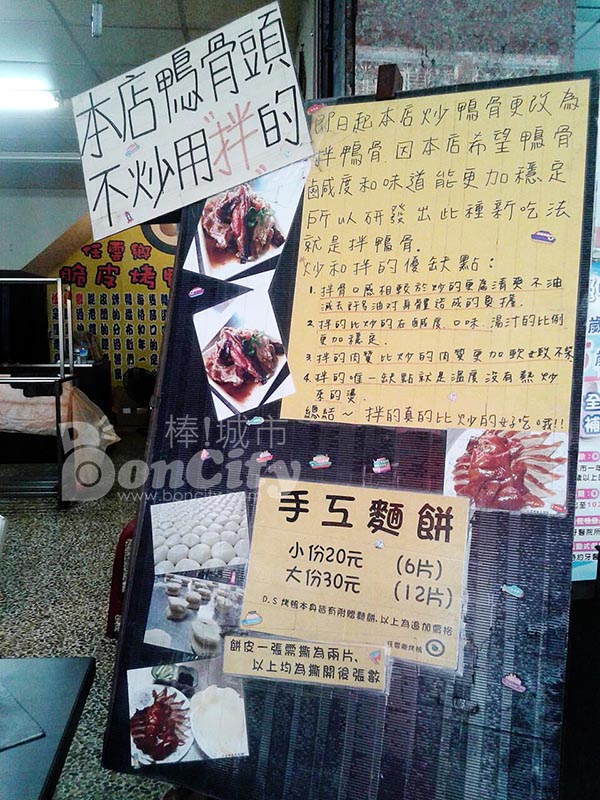 本店鴨骨頭
不炒用"拌"的
即日起本店炒鴨骨更改為
拌鴨骨.因本店希望鴨骨
鹹度和味道能更加穩定
所以研發出此種新吃法
就是拌鴨骨.
炒和拌的優缺點:
1. 拌骨口感相較於炒的更為清爽不油
減去許多油對身體造成的負擔.
2. 拌的比炒的在鹹度.口味.湯汁的比例
更加穩定.
3. 拌的肉質比炒的肉質更加軟嫩不柴
4. 拌的唯一缺點就是溫度沒有熱炒
來的燙.
總結~ 拌的真的比炒的好吃哦!!
任雲鄉
脆皮烤鴨
棒!城市
BonCity
www.boncity.com
手工麵餅
小份20元 (6片)
大份30元 (12片)
D.S 烤鴨本身皆有附贈麵餅.以上為追加價格
任雲鄉烤鴨
餅皮一張需撕為兩片,
以上均為撕開後張數